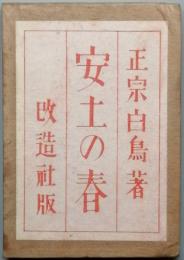 正宗白鳥著
安土の春
改造社版